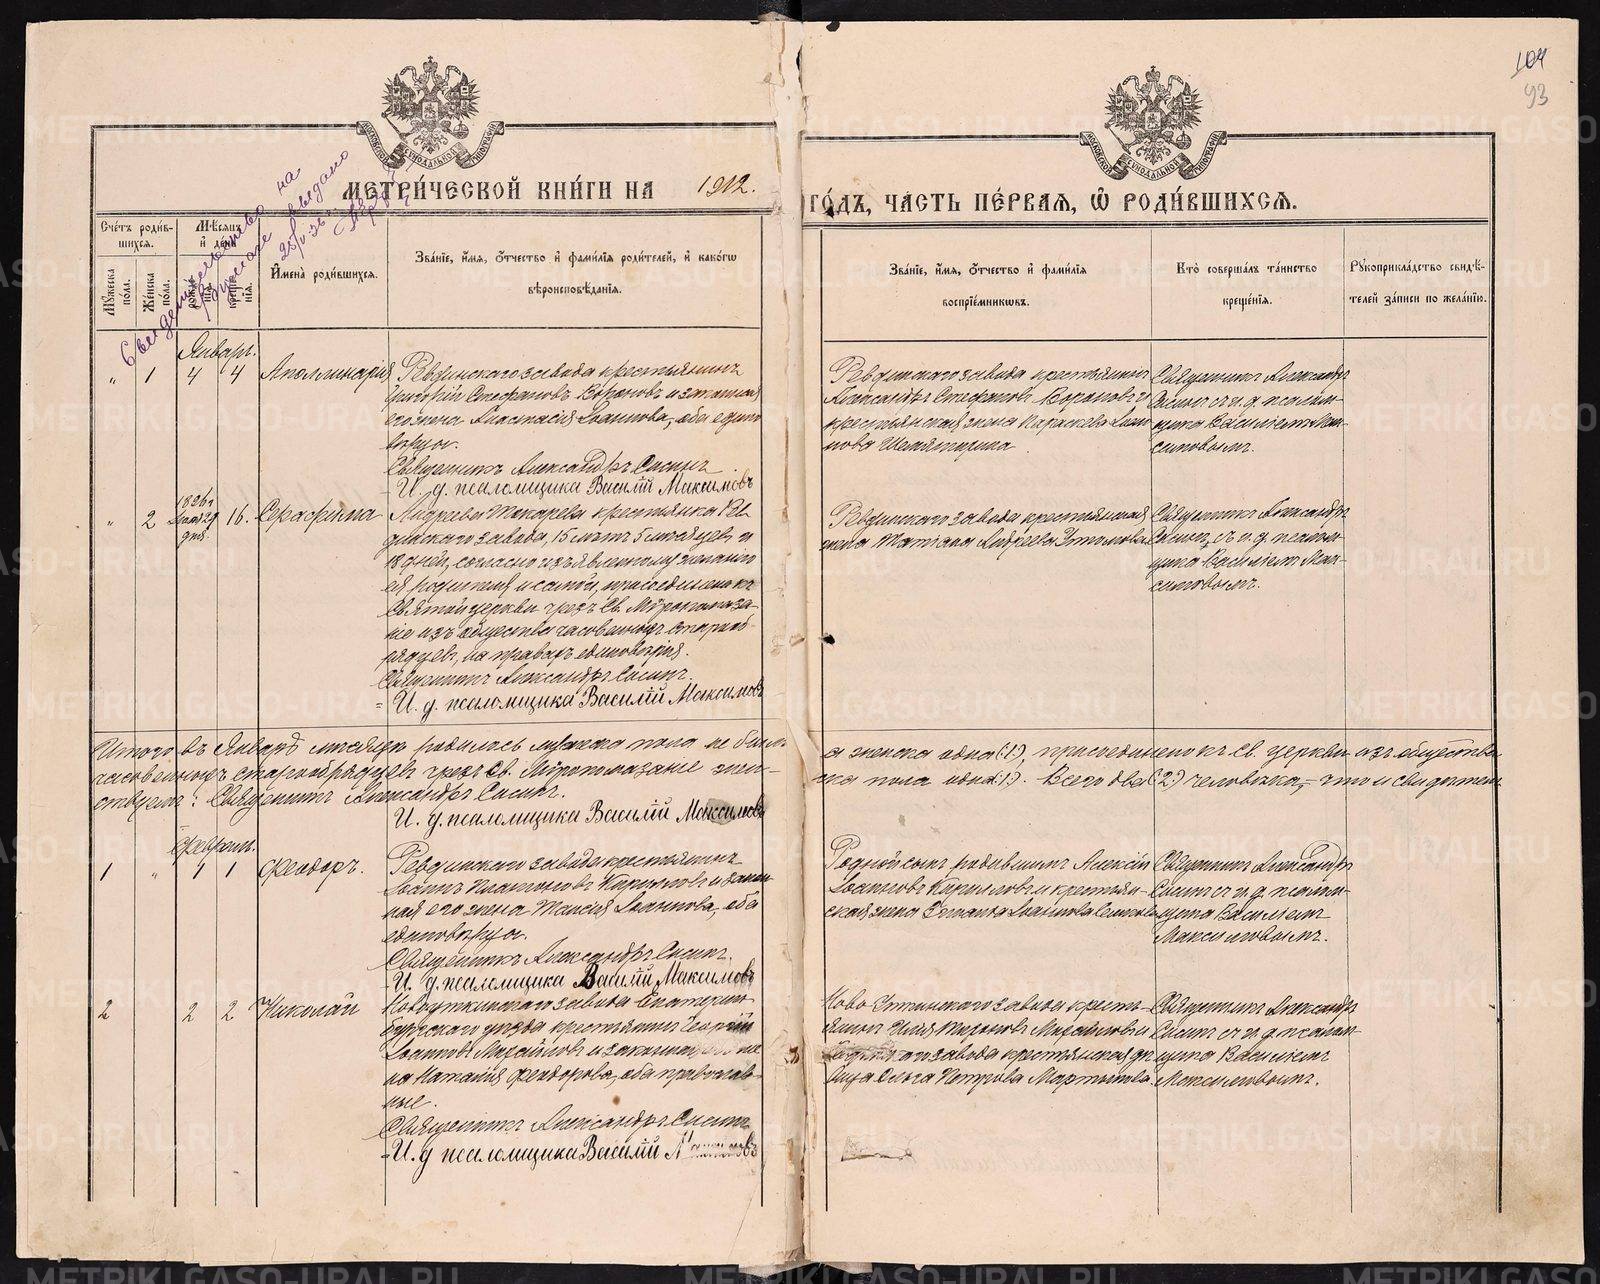 104
93
МОСКОВСКОЙ СѴНОДАЛЬНОЙ ТИПОГРАФІИ
МОСКОВСКОЙ СѴНОДАЛЬНОЙ ТИПОГРАФІИ
МЕТРИ́ЧЕСКОЙ КНИ́ГИ НА 1912.
ГО́ДЪ, ЧА́СТЬ ПЕ́РВАЯ, Ѡ҆ РОДИ́ВШИХСЯ.
Свидетельство на
выдано
25/V-36 г.
Сче́тъ роди́в-
шихся.
Мѣ́сяцъ
и҆ де́нь
Мꙋ́жеска по́ла.
Же́нска по́ла.
рожде́нїя.
креще́нїя.
И҆мена̀ роди́вшихся.
Зва́нїе, и҆́мя, ѻ҆́тчество и҆ фами́лїя роди́телей, и҆ како́гѡ
вѣроисповѣ́данїя.
Зва́нїе, и҆́мя, ѻ҆́тчество и҆ фами́лїя
воспрїе́мникѡвъ.
Кто̀ соверша́лъ та́инство
креще́нїя.
Рꙋкоприкла́дство свидѣ́-
телей за́писи по жела́нїю.
Январь.
" 1 4 4 Аполлинарія
Ревдинскаго завода крестьянинъ
Григорій Стефановъ Вороновъ и законная
его жена Анастасія Іоаннова, оба едино
верцы.
Священникъ Александръ Сисинъ
И. д. псаломщика Василій Максимовъ
Ревдинскаго завода крестьянинъ
Александръ Стефановъ Вороновъ и
крестьянская жена Параскева
Священникъ Александръ
Сисинъ съ и. д. псалом-
щика Василіемъ Мак-
симовымъ.
" 2 1896 г. 29 дня. 16. Серафима
Андреева Токарева крестьянка Рев
динскаго завода, 15 лѣтъ 5 месяцевъ и
18 дней, согласно изъявленному желанію
ея родителя и самой, присоединена къ
Святой церкви чрезъ Св. Мѵропомаза-
ніе изъ общества часовенныхъ старооб-
рядцевъ, на правахъ единоверія.
Священникъ Александръ Сисинъ.
И. д. псаломщика Василій Максимовъ
Ревдинскаго завода крестьянская
жена Татіана Андреева
Священникъ Александръ
Сисинъ, съ и. д. псалом-
щика Василіемъ Мак-
симовымъ.
Итого въ Январѣ месяце родилось мужска пола не было
а женска одна (1), присоединено къ Св. церкви изъ общества
часовенныхъ старообрядцевъ чрезъ Св. Мѵропомазаніе жен-
ска пола одна (1). Всего два (2) человека, что и свидетель
ствуемъ: Священникъ Александръ Сисинъ.
И. д. псаломщика Василій Максимовъ
Февраль.
1 " 1 1 Ѳеодоръ.
Ревдинскаго завода крестьянинъ
Іоаннъ Платоновъ Кирилловъ и закон-
ная его жена Таисія Іоаннова, оба
единоверцы.
Священникъ Александръ Сисинъ.
И. д. псаломщика Василій Максимовъ
Родной сынъ родившимъ Алексій
Іоанновъ Кирилловъ и крестьян-
ская жена Іоаннова
Священникъ Александръ
Сисинъ съ и. д. псалом-
щика Василіемъ
Максимовымъ.
2 2 2 Николай
Новоуткинскаго завода Екатерин-
бургскаго уезда крестьянинъ Георгій
Іоанновъ Михайловъ и законная его же
на Наталія Ѳеодорова, оба православ-
ные.
Священникъ Александръ Сисинъ
И. д псаломщика Василій Максимовъ
Ново-Уткинскаго завода кресть-
янинъ Илія Михайловъ и
завода крестьянская де
вица Ольга Петрова Мартынова
Священникъ Александръ
Сисинъ съ и. д. псалом-
щика Василіемъ
Максимовымъ.
METRIKI.GASO-URAL.RU